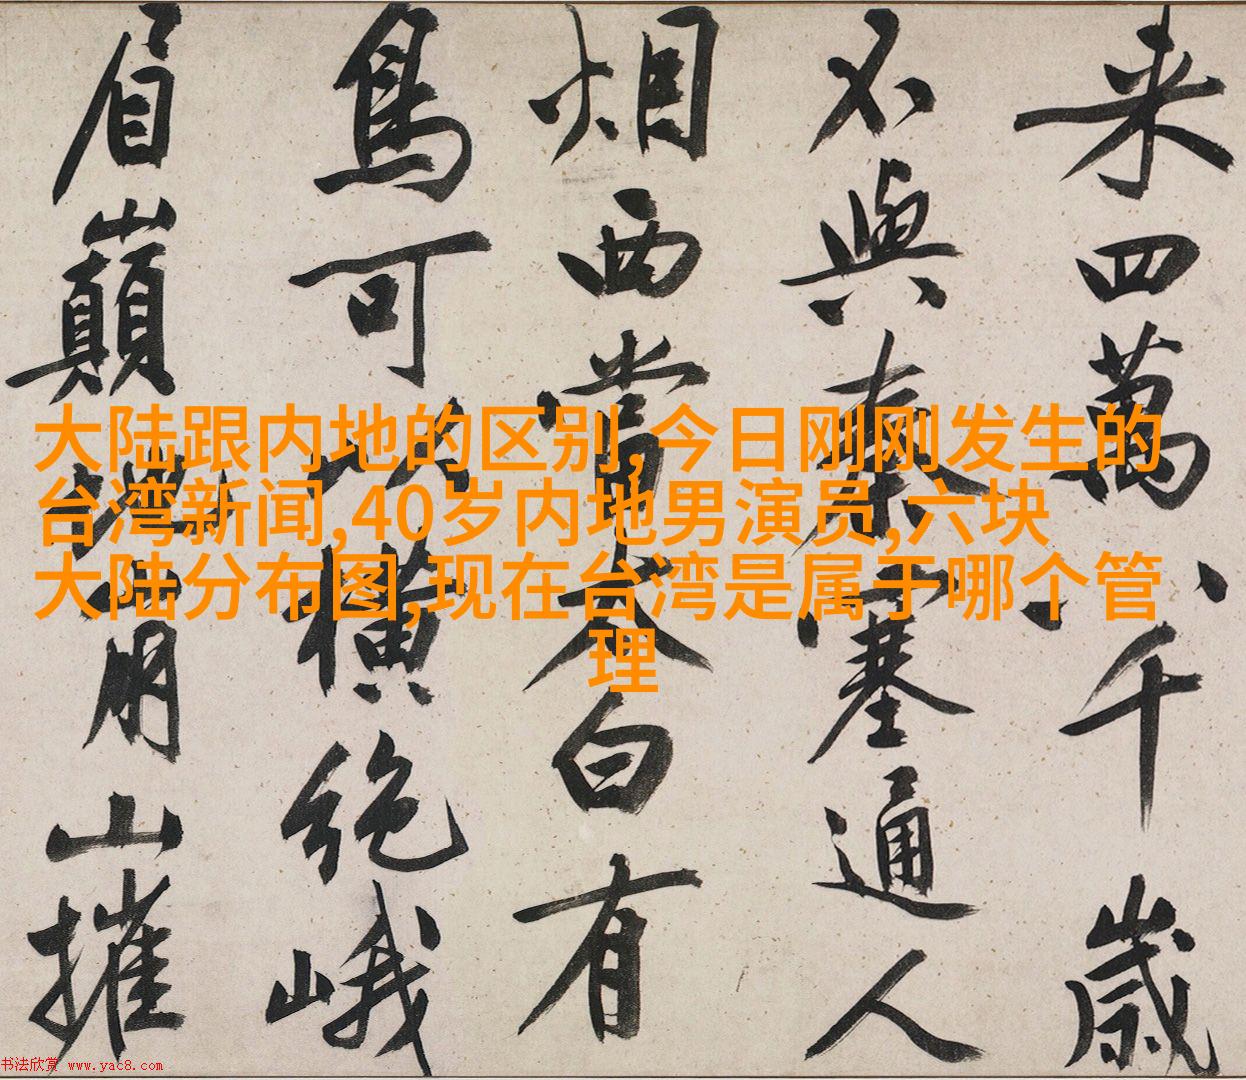 来四萬八千歲
不與秦塞通人
烟西當太白有
鳥可以横絶峨
眉巔地崩山摧
大陆跟内地的区别,今日刚刚发生的
台湾新闻,40岁内地男演员,六块
大陆分布图,现在台湾是属于哪个管
理
书法欣赏 www.yac8.com